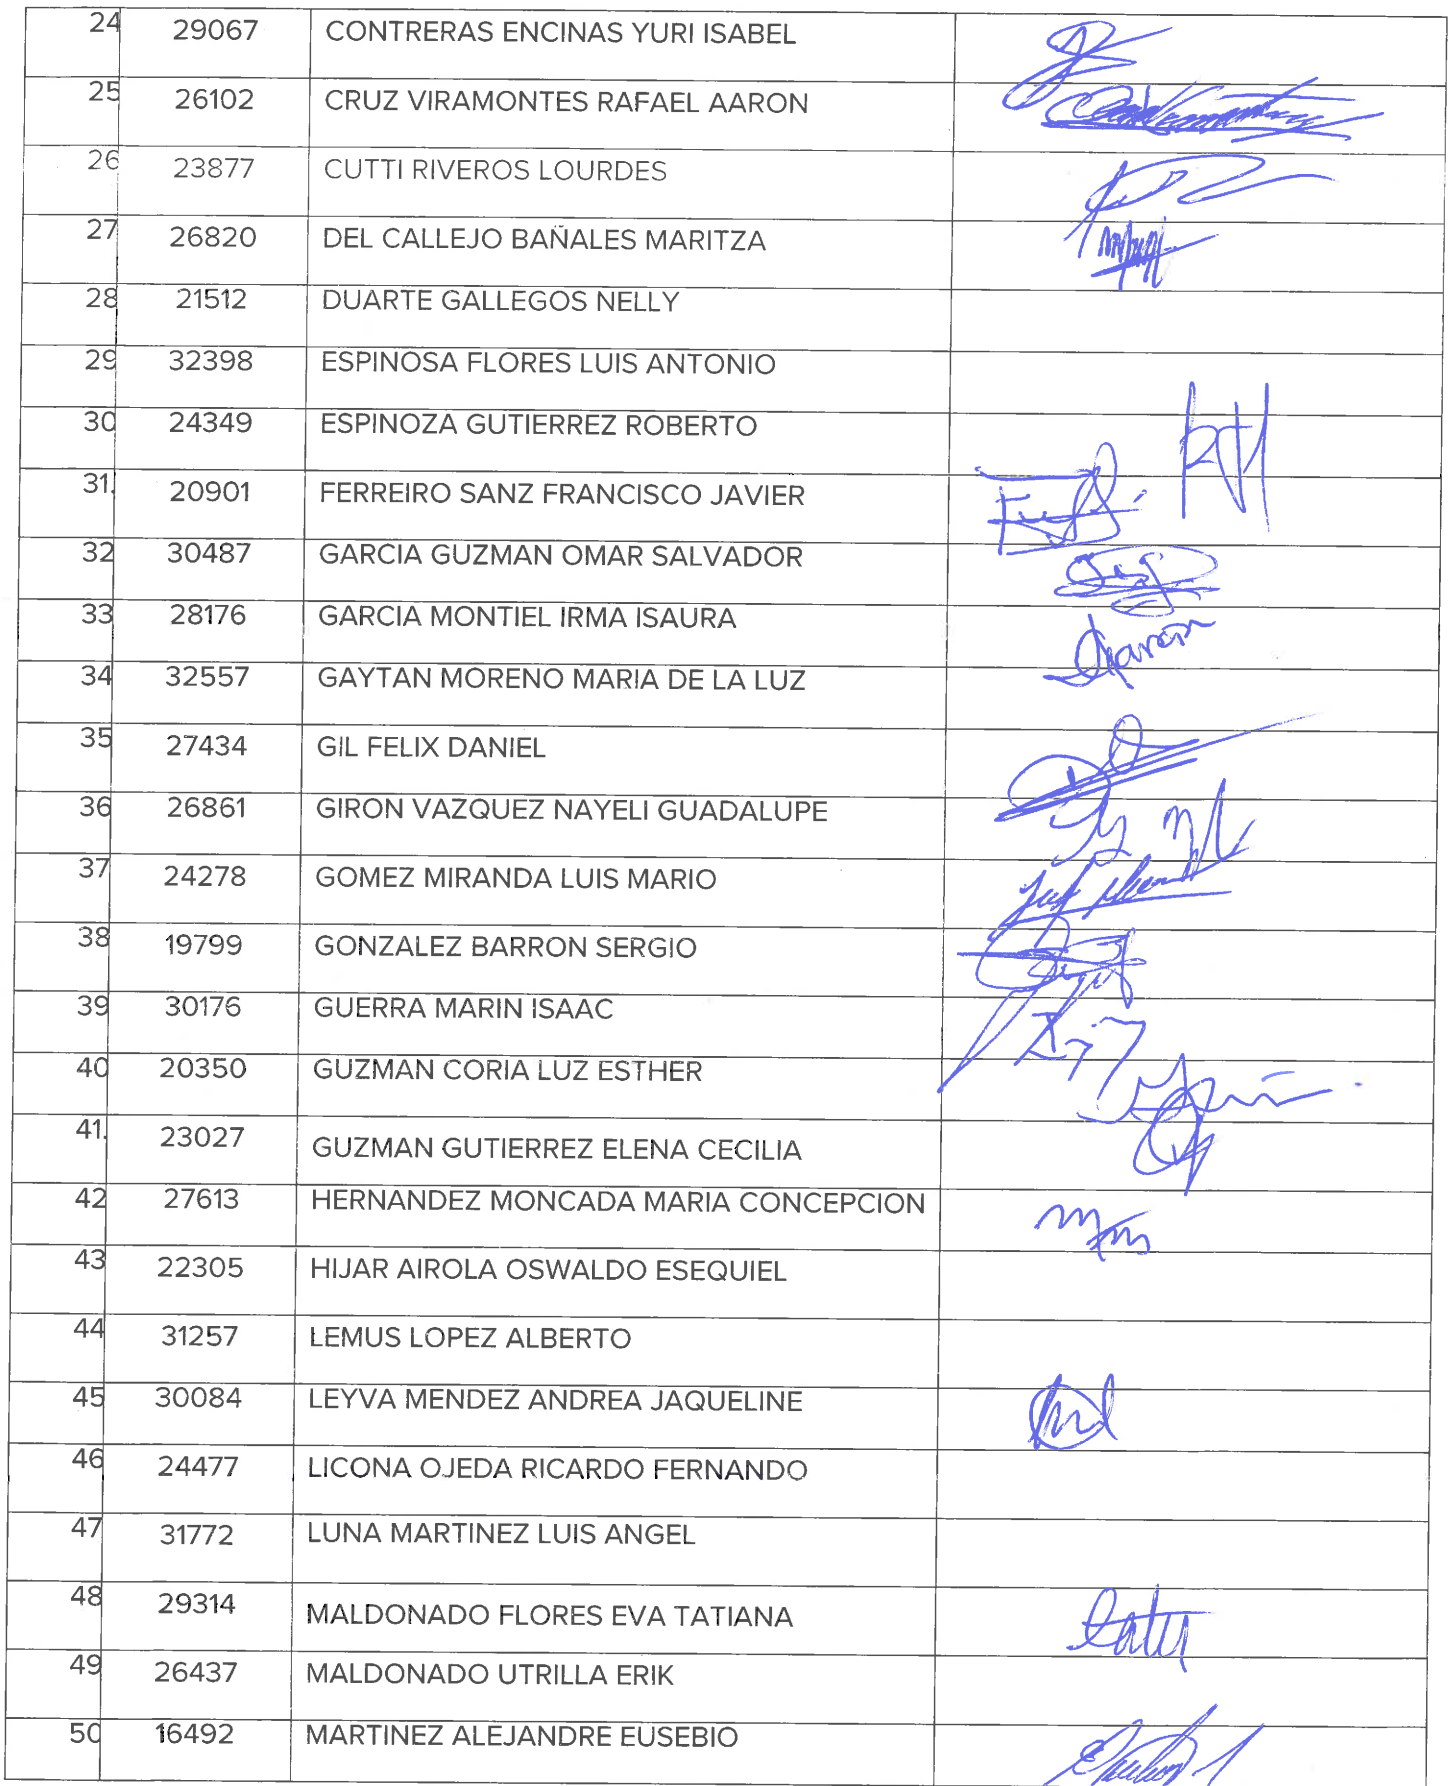 24 29067 CONTRERAS ENCINAS YURI ISABEL
25 26102 CRUZ VIRAMONTES RAFAEL AARON
26 23877 CUTTI RIVEROS LOURDES
27 26820 DEL CALLEJO BAÑALES MARITZA
28 21512 DUARTE GALLEGOS NELLY
29 32398 ESPINOSA FLORES LUIS ANTONIO
30 24349 ESPINOZA GUTIERREZ ROBERTO
31. 20901 FERREIRO SANZ FRANCISCO JAVIER
32 30487 GARCIA GUZMAN OMAR SALVADOR
33 28176 GARCIA MONTIEL IRMA ISAURA
34 32557 GAYTAN MORENO MARIA DE LA LUZ
35 27434 GIL FELIX DANIEL
36 26861 GIRON VAZQUEZ NAYELI GUADALUPE
37 24278 GOMEZ MIRANDA LUIS MARIO
38 19799 GONZALEZ BARRON SERGIO
39 30176 GUERRA MARIN ISAAC
40 20350 GUZMAN CORIA LUZ ESTHER
41. 23027 GUZMAN GUTIERREZ ELENA CECILIA
42 27613 HERNANDEZ MONCADA MARIA CONCEPCION
43 22305 HIJAR AIROLA OSWALDO ESEQUIEL
44 31257 LEMUS LOPEZ ALBERTO
45 30084 LEYVA MENDEZ ANDREA JAQUELINE
46 24477 LICONA OJEDA RICARDO FERNANDO
47 31772 LUNA MARTINEZ LUIS ANGEL
48 29314 MALDONADO FLORES EVA TATIANA
49 26437 MALDONADO UTRILLA ERIK
50 16492 MARTINEZ ALEJANDRE EUSEBIO